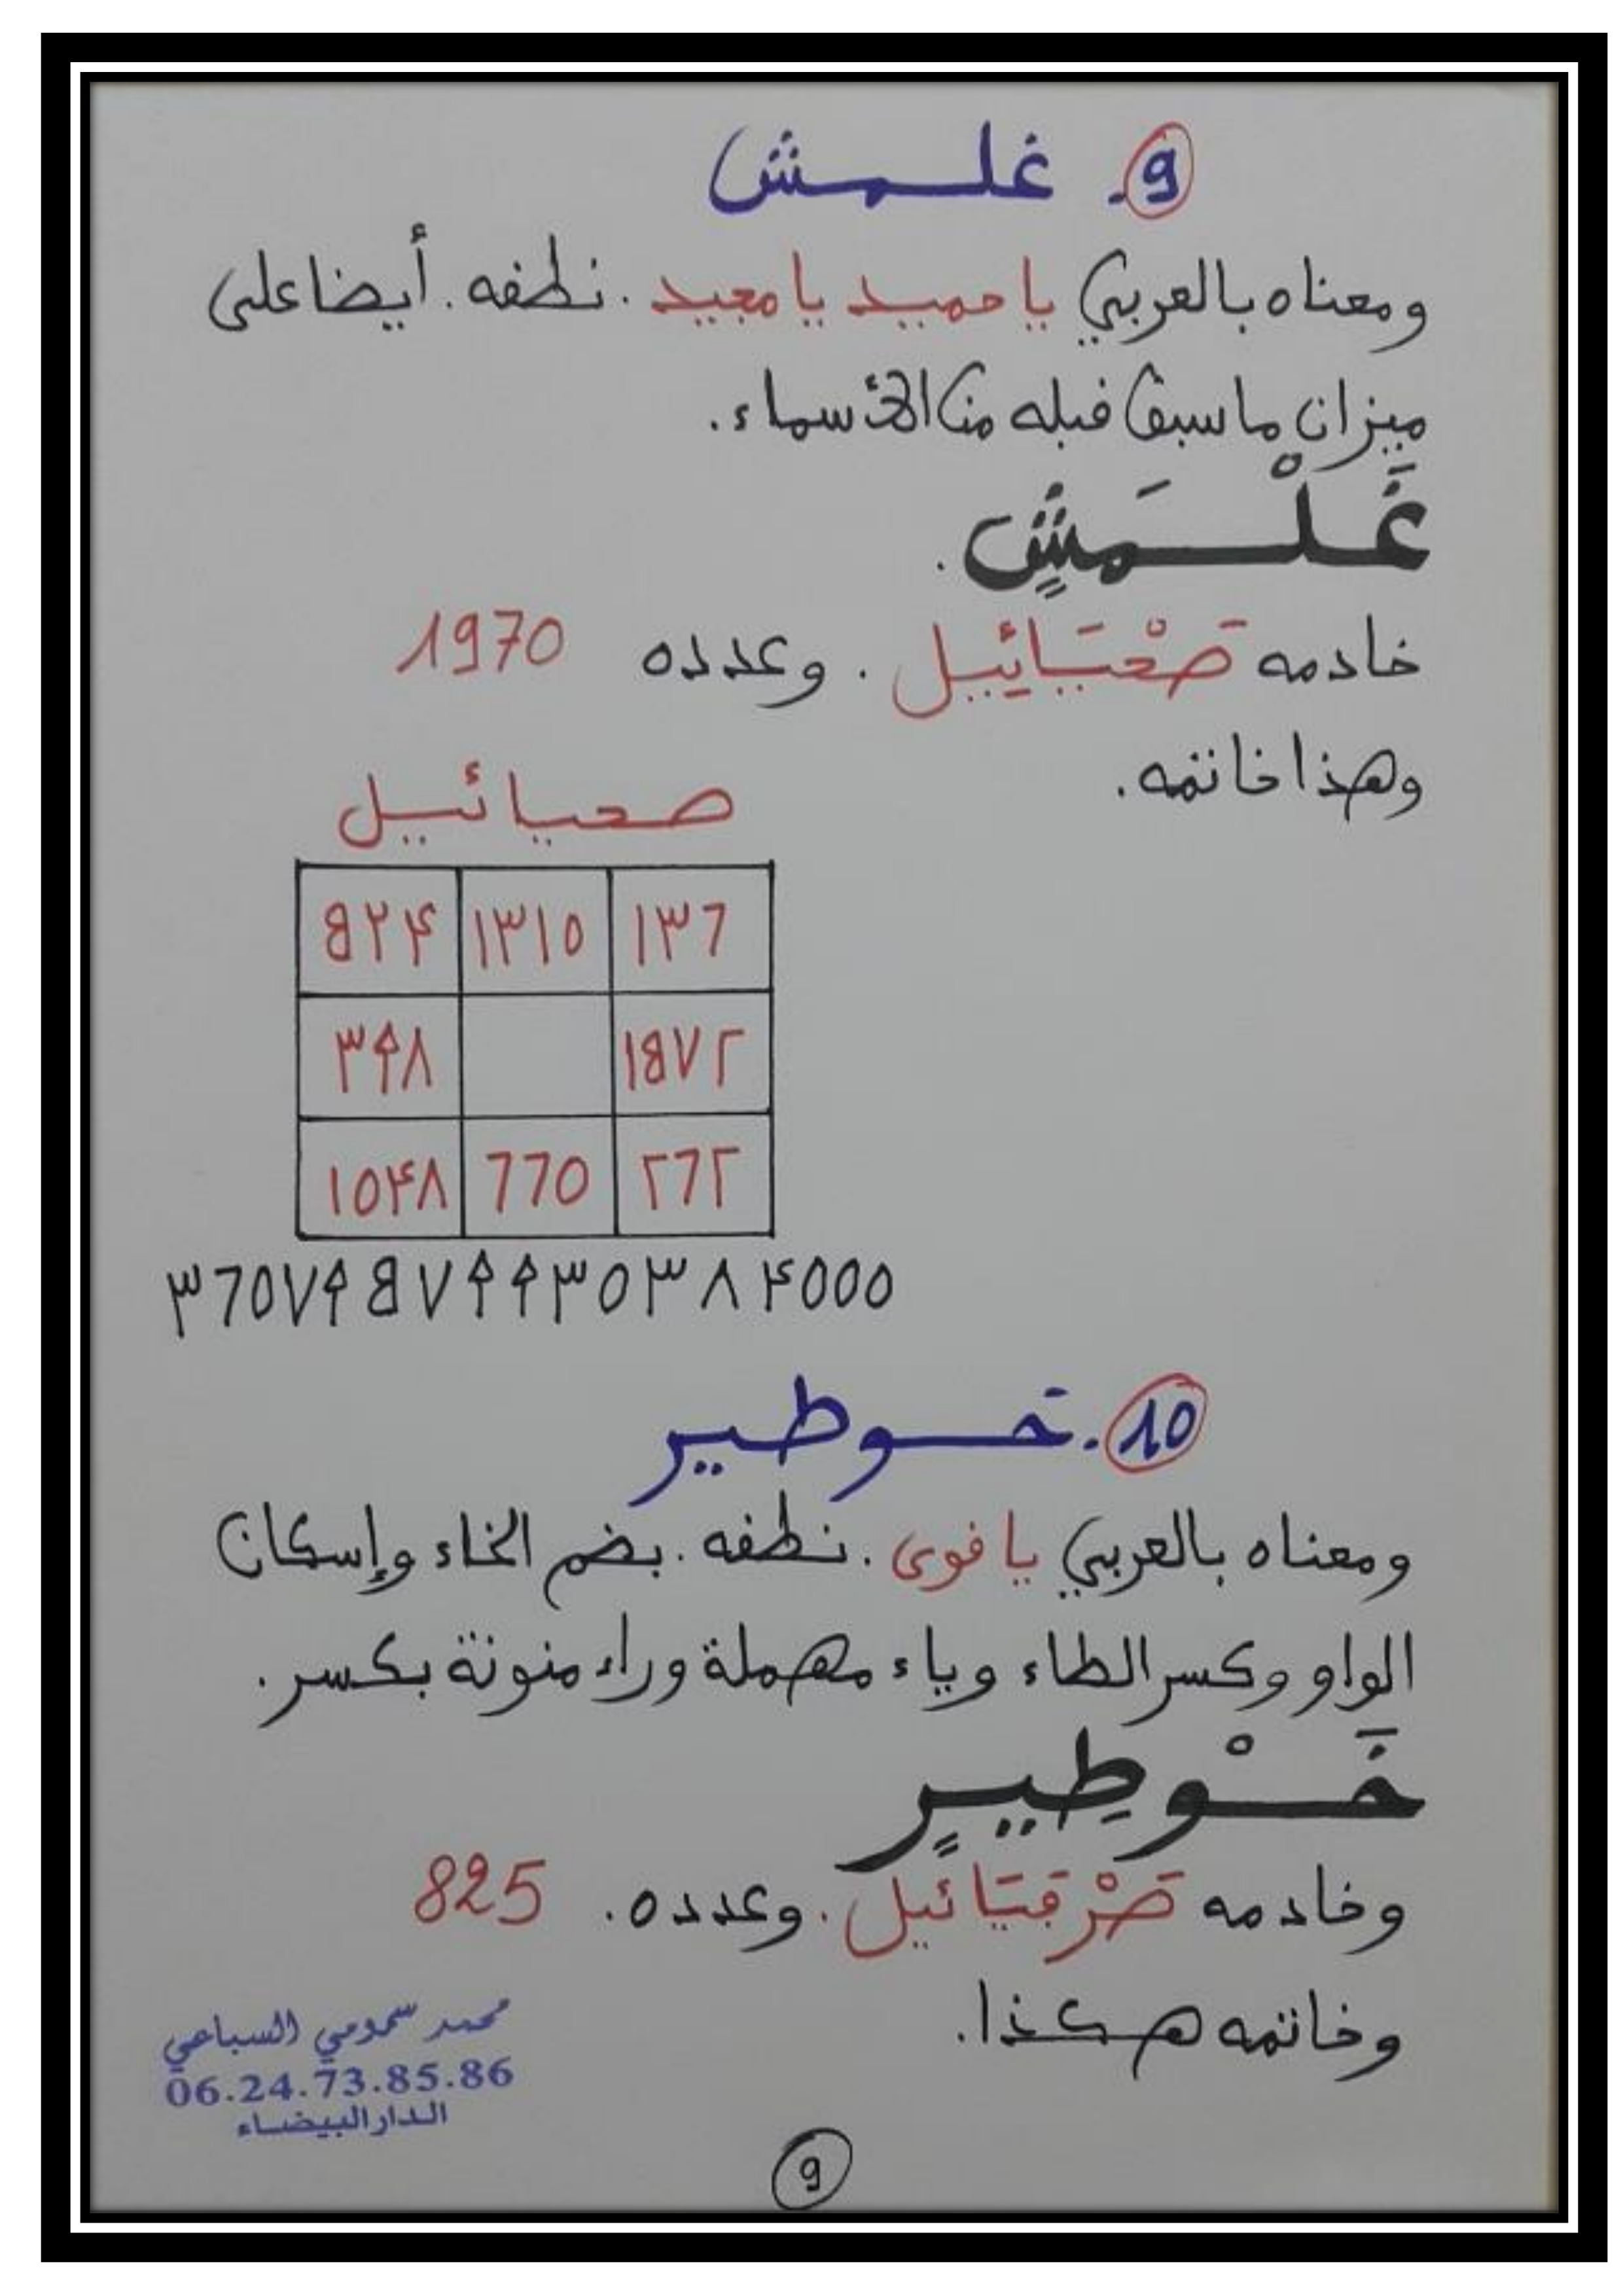 9. غلمش
ومعناه بالعربي يا حميد يا مجيد . نطفه . أيضا على
ميزان ما سبق فبله من الأسماء .
غَلْمَشٍ .
خادمه صَعْيَائيل . وعدده 1970
وهذا خاتمه .
صعيائيل
٥٢۴ ١٣١٥ ١٣٦
٣٩٨ ١٥٧٢
١٥۴٨ ٦٦٥ ٢٦٢
10. خوطير
ومعناه بالعربي يا فوى . نطفه . بضم الخاء وإسكان
الواو وكسر الطاء وياء مهملة وراء منونة بكسر .
خَوْطِيرٍ
وخادمه . وعدده . 825
وخاتمه هكذا .
محمد سمومي السباعي
06.24.73.85.86
الدار البيضاء
9